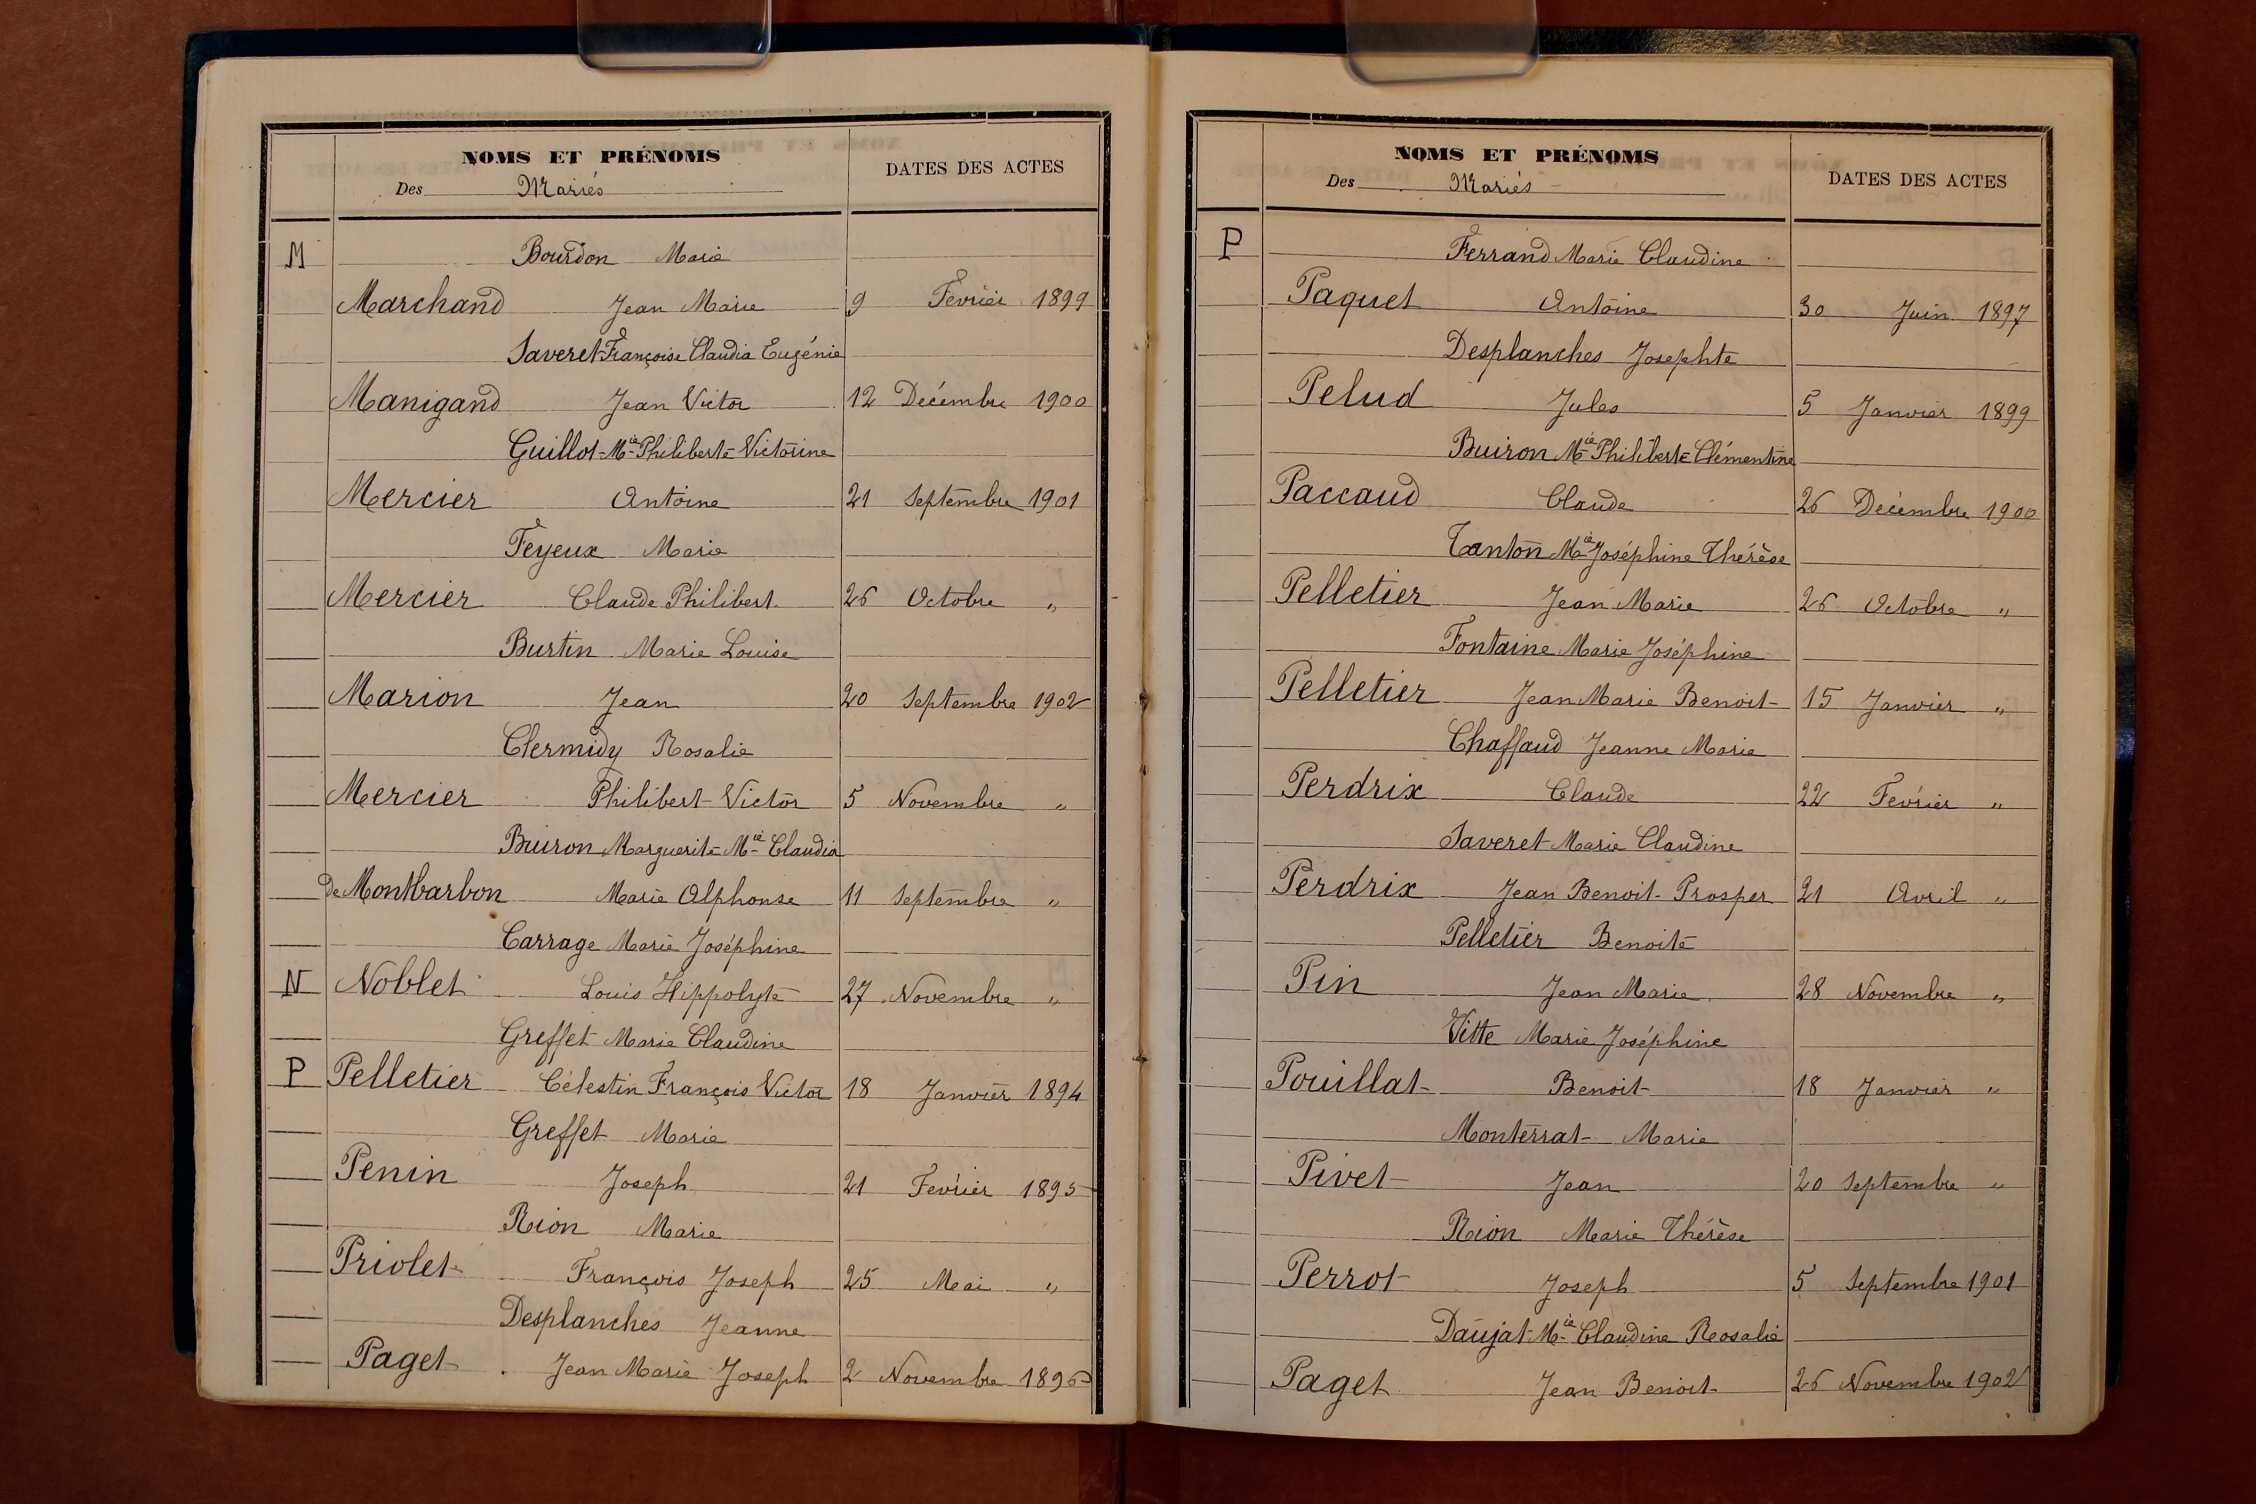 NOMS ET PRÉNOMS
DATES DES ACTES
Des Mariés
M Bourdon Marie
Marchand Jean Marie 9 Février 1899
Saveret Françoise Claudia Eugénie
Manigand Jean Victor 12 Décembre 1900
Guillot Mie Philiberte Victorine
Mercier Antoine 21 Septembre 1901
Feyeux Marie
Mercier Claude Philibert 26 Octobre "
Burtin Marie Louise
Marion Jean 20 Septembre 1902
Clermidy Rosalie
Mercier Philibert Victor 5 Novembre "
Buiron Marguerite Mie Claudia
de Montbarbon Marie Alphonse 11 Septembre "
Carrage Marie Joséphine
N Noblet Louis Hippolyte 27 Novembre "
Greffet Marie Claudine
P Pelletier Célestin François Victor 18 Janvier 1894
Greffet Marie
Penin Joseph 21 Février 1895
Rion Marie
Priolet François Joseph 25 Mai "
Desplanches Jeanne
Paget Jean Marie Joseph 2 Novembre 1896
NOMS ET PRÉNOMS
DATES DES ACTES
Des Mariés
P Ferrand Marie Claudine
Paquet Antoine 30 Juin 1897
Desplanches Josephte
Pelud Jules 5 Janvier 1899
Buiron Mie Philiberte Clémentine
Paccaud Claude 26 Décembre 1900
Tanton Mie Joséphine Thérèse
Pelletier Jean Marie 26 Octobre "
Fontaine Marie Joséphine
Pelletier Jean Marie Benoit 15 Janvier "
Chaffaud Jeanne Marie
Perdrix Claude 22 Février "
Saveret Marie Claudine
Perdrix Jean Benoit Prosper 21 Avril "
Pelletier Benoite
Pin Jean Marie 28 Novembre "
Vitte Marie Joséphine
Pouillat Benoit 18 Janvier "
Monterrat Marie
Pivet Jean 20 Septembre "
Rion Marie Thérèse
Perrot Joseph 5 Septembre 1901
Daujat Mie Claudine Rosalie
Paget Jean Benoit 26 Novembre 1902